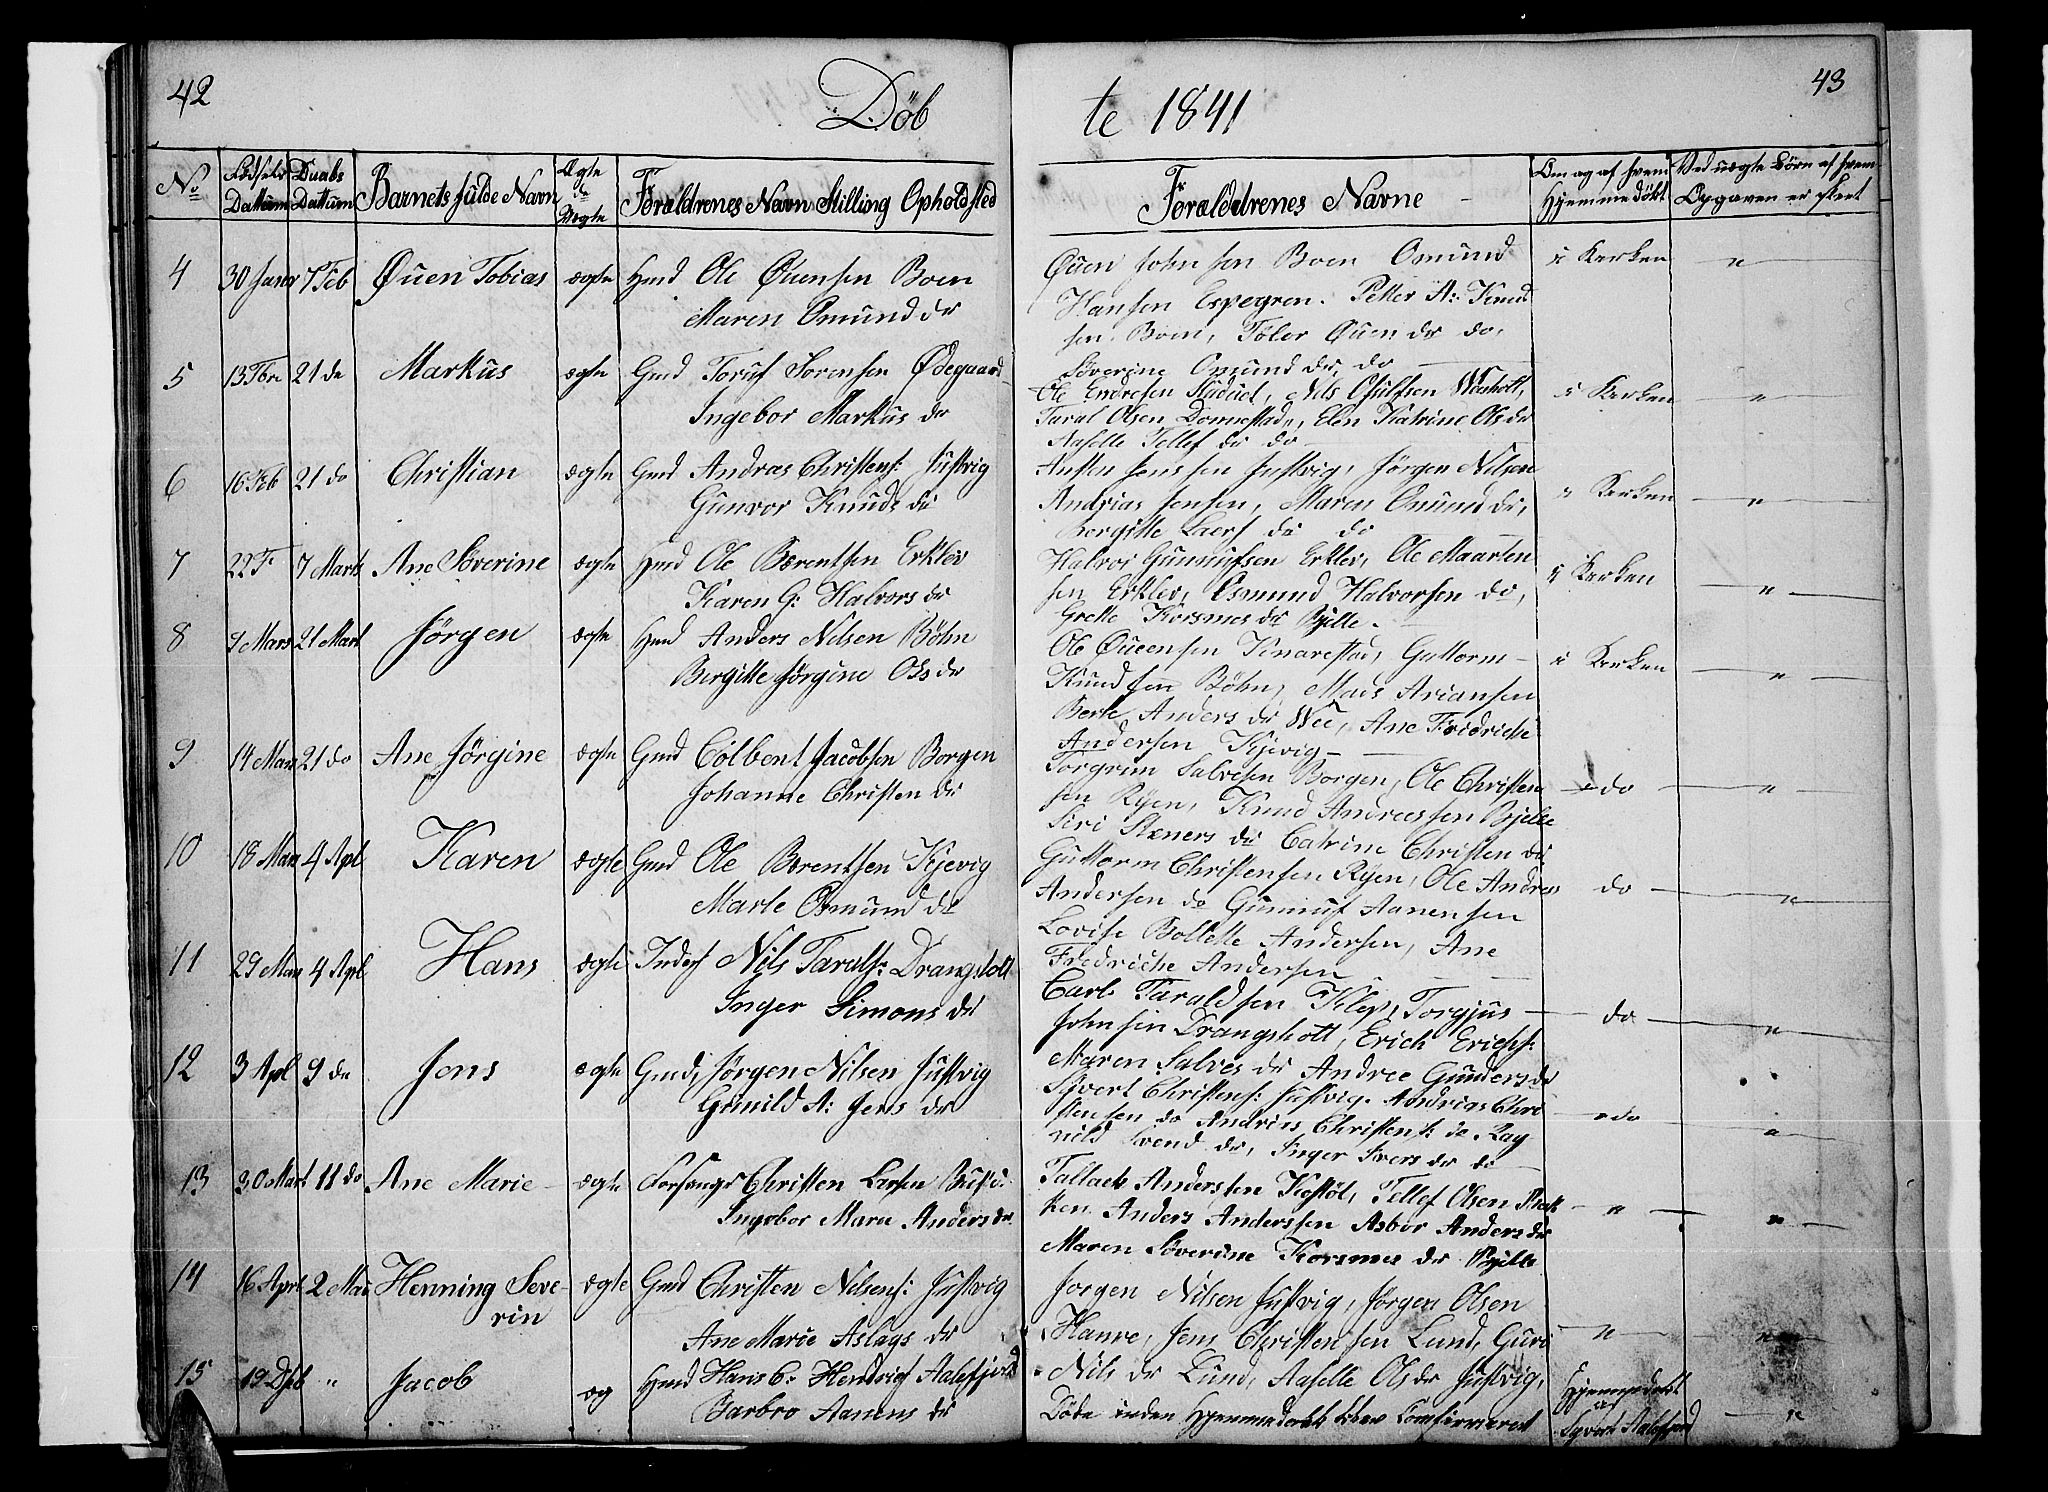 42
Döb
te 1841
43
No
Födsels Dattum
Daabs Dattum
Barnets fulde Navn
Ægte de Uegte
Foraldrenes Navn Stilling Opholdsted
Foraldrenes Navne
Om og af hvem Hjemmedöbt
Ved uægte Börn af hvem Opgaven er skeet
4 30 Janr 7 Feb Øuen Tobias ægte Hmd Ole Øuensen Boen
Maren Omund dr
Øuen Johnsen Boen Omund
Hansen Espegren. Petter A: Knud
sen Boen, Øuen dr do,
Söverine Omund dr do
i Kerken "
5 13 Fbr 21 de Markus ægte Gmd Toruf Sorensen Ødegaard
Ingebor Markus dr
Ole Endresen Studuel, Nils Osulfsen
Taral Olsen Donnestad, Elen Katrine Ols dr
Aaselle Tellef dr do
i Kerken "
6 16 Feb 21 do Christian ægte Gmd Andras Christens: Justvig
Gunvor Knuds dr
Austen Jenssen Justvig, Jörgen Nilsen
Andrias Jensen, Maren Omund dr,
Bergitte Laers dr do
" Kerken "
7 22 F 7 Marts Ane Söverine ægte Hmd Ole Bærentsen Erklev
Karen G: Halvors dr
Halvor Gunnufsen Erklev, Ole Maarten
sen Erklev, Osmund Halvorsen do,
Grette Korsmes dr Bjelle.
i Kerken "
8 9 Mars 21 Mart Jörgen ægte Hmd Anders Nilsen Böhn
Bergitte Jörgine Ols dr
Ole Øueensen Knarestad, Guttorm
Knudsen Böhn, Mads Ariansen
Berte Anders dr Wee, Ane Fridriche
Andersen Kjevig
i Kerken "
9 14 Mars 21 do Ane Jörgine ægte Gmd Colbent Jacobsen Borgen
Johanne Christen dr
Torgrim Salvesen Borgen, Ole Christen
sen Ryen, Knud Andreassen Bjelle
Siri Steners dr Catrine Christen dr
do "
10 18 Mars 4 Apl Karen ægte Gmd Ole Berentsen Kjevig
Marte Osmund dr
Guttorm Christensen Ryen, Ole Andreas
Andersen do Gunnuf Aanensen
Lovise Bollette Andersen, Ane
Fredriche Andersen
do "
11 29 Mars 4 Apl Hans ægte Inders Nils Taralds: Drangsholt
Inger Simons dr
Carl Taraldsen Klep, Torgjus
Johnsen Drangsholt, Erich Erichs:
Maren Salves dr Andree Gunders dr
do "
12 3 Apl 9 de Jens ægte Gmd, Jörgen Nilsen Justvig
Gunild A: Jens dr
Syvert Christens: Justvig. Andrias Chri
stensen do Andrias Christens: do Rag
nild Svend dr, Inger Ivers dr do
do "
13 30 Mart 11 do Ane Marie ægte Forsangr Christen Larsen
Ingebor Marie Anders dr
Tallack Anderssen Kostöl, Tellef Olsen
ken Anders Anderssen Asbor Anders dr
Maren Söverine Korsmes dr Bjelle
" "
14 16 Aprl 2 Mai Henning Seve-
rin ægte Gmd Christen Nilsens: Justvig
Ane Marie Aslags dr
Jorgen Nilsen Justvig, Jörgen Olsen
Hanre, Jens Christensen Lund, Guri
Nils dr Lund, Aaselle Ols dr Justvig,
" "
15 19 " Jacob æg Hmd Hans C: Hendrics Aalefjerd
Barbro Aanens dr
Döde inden Hjemmedaabt blev Comfirmeret
Hjemmedöbt
af
Syvert Aalefjerd "